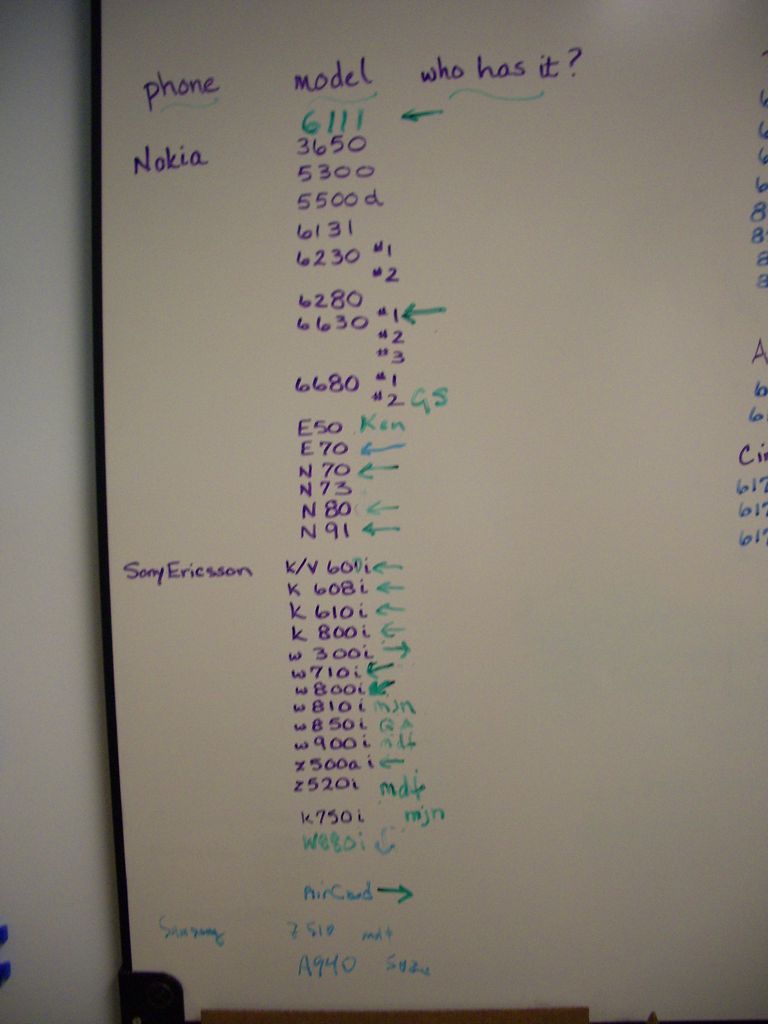 phone model who has it?
6111 ←
Nokia 3650
5300
5500d
6131
6230 #1
#2
6280
6630 #1 ←
#2
#3
6680 #1
#2 GS
E50 Ken
E70 ←
N70 ←
N73
N80 ←
N91 ←
SonyEricsson K/V 600i ←
K 608i ←
K 610i ←
K 800i ←
W 300i →
W710i ←
W800i ←
W810i mjn
W850i QA
W900i mdf
Z500ai ←
Z520i mdf
K750i mjn
W880i
AirCard →
Samsung Z510 mdf
A940 Suzu
A
Cin
617
617
617